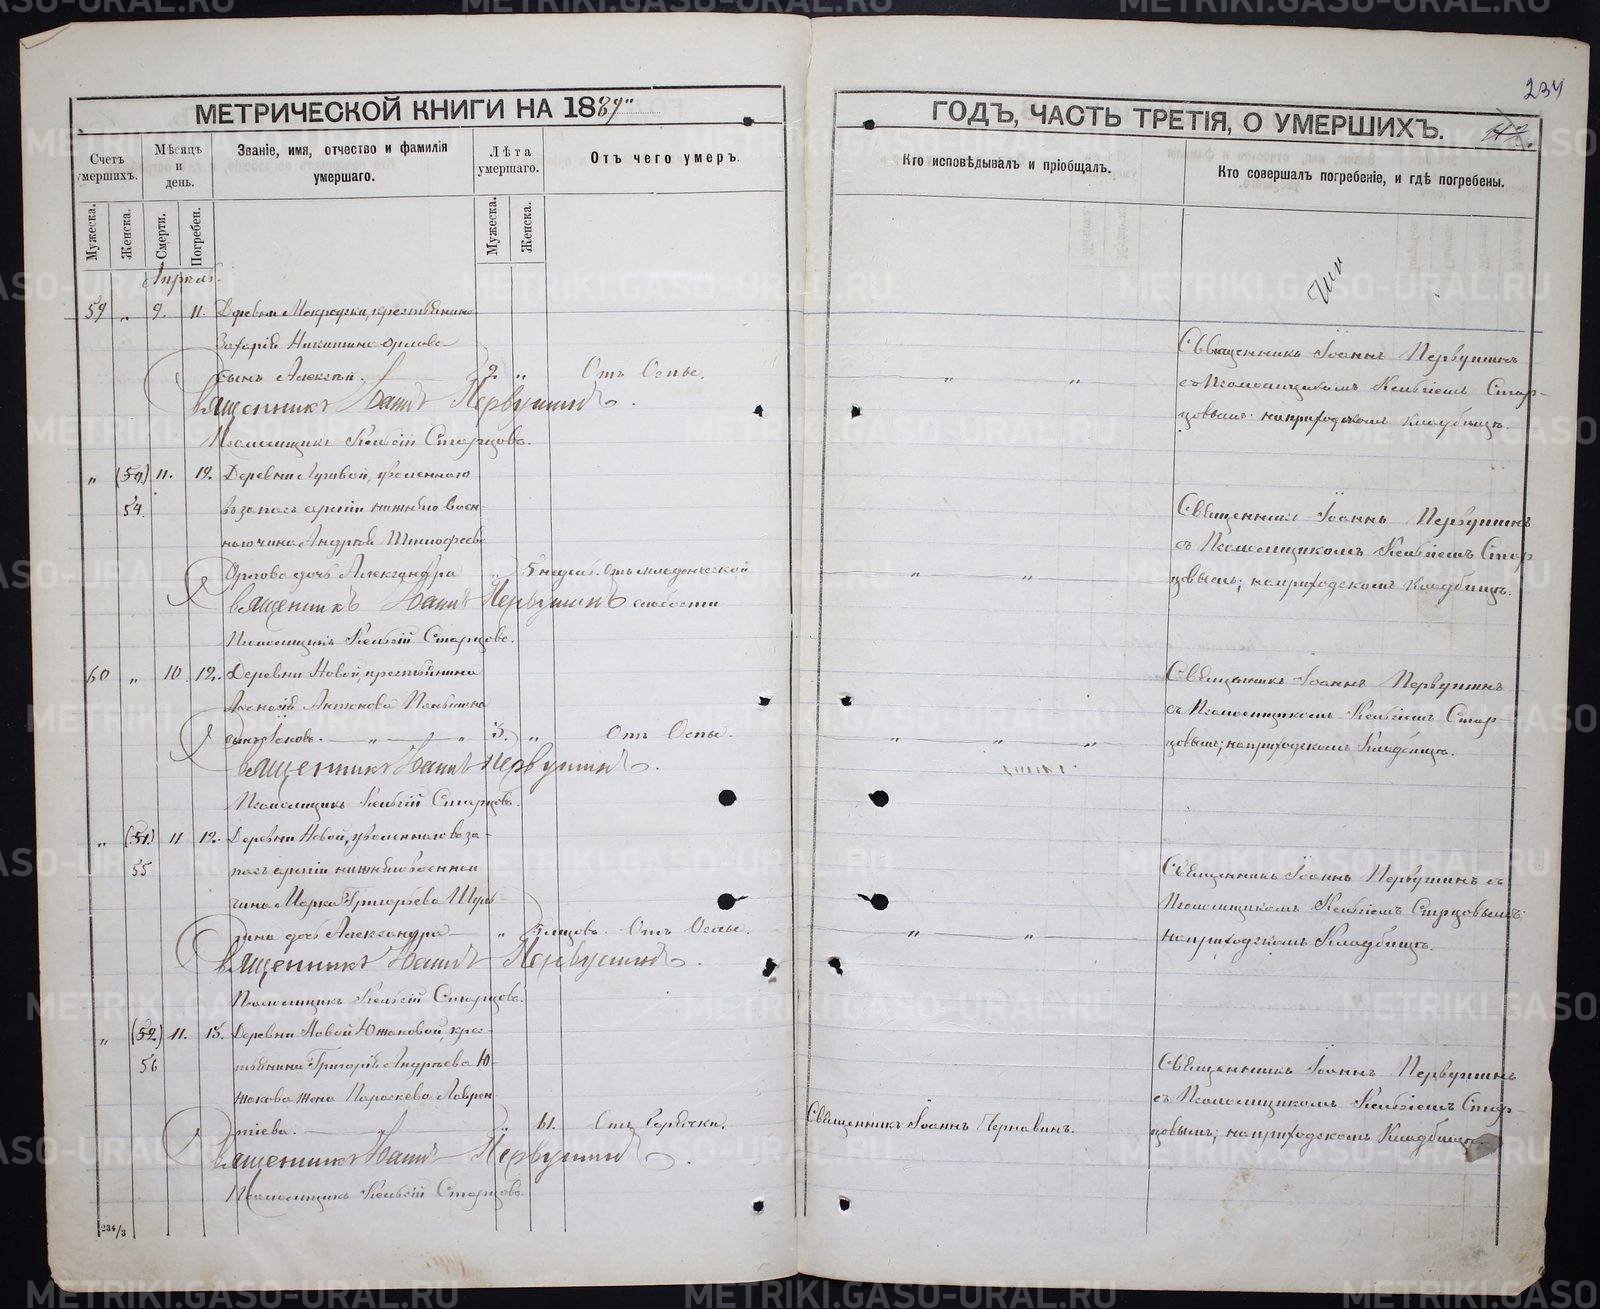 234
МЕТРИЧЕСКОЙ КНИГИ НА 1889
ГОДЪ, ЧАСТЬ ТРЕТІЯ, О УМЕРШИХЪ.
Счетъ умершихъ.
Мѣсяцъ и день.
Званіе, имя, отчество и фамилія умершаго.
Лѣта умершаго.
Отъ чего умеръ.
Кто исповѣдывалъ и пріобщалъ.
Кто совершалъ погребеніе, и гдѣ погребены.
Мужеска.
Женска.
Смерти.
Погребен.
Мужеска.
Женска.
Апрель.
59 " 9. 11. Деревни крестьянина
Захарія Никитина Орлова
сынъ Алексѣй. 2. " Отъ Оспы. " "
Священникъ Іоаннъ Первушинъ
съ Псаломщикомъ Стар-
цовымъ; на приходскомъ кладбищѣ.
Священникъ Іоаннъ Первушинъ.
Псаломщикъ Старцовъ.
" 11. 12. Деревни Луговой, уволеннаго
54. въ запасъ арміи нижняго воен-
наго чина Андрея Тимофеева
Орлова дочь Александра " 5 недѣль. Отъ младенческой
слабости " "
Священникъ Іоаннъ Первушинъ
съ Псаломщикомъ Стар
цовымъ; на приходскомъ кладбищѣ.
Священникъ Іоаннъ Первушинъ
Псаломщикъ Старцовъ.
60 " 10 12. Деревни Новой, крестьянина
Антонова
сынъ Іаковъ. " " 3. " Отъ Оспы. " " "
Священникъ Іоаннъ Первушинъ
съ Псаломщикомъ Стар-
цовымъ; на приходскомъ кладбищѣ.
Священникъ Іоаннъ Первушинъ.
Псаломщикъ Старцовъ.
" (51) 11 12. Деревни Новой, уволеннаго въ за-
55 пасъ арміи нижняго военнаго
чина Марка Григорьева
дочь Александра " Отъ Оспы. " "
Священникъ Іоаннъ Первушинъ съ
Псаломщикомъ Старцовымъ;
на приходскомъ кладбищѣ.
Священникъ Іоаннъ Первушинъ.
Псаломщикъ Старцовъ.
" (52) 11. 13. Деревни Новой Южаковой, крес-
56 тьянина Григорія Андреева Ю-
жакова жена Параскева Лаврен
тіева. " 61. Отъ Горячки.
Священникъ Іоаннъ Чернавинъ.
Священникъ Іоаннъ Первушинъ
съ Псаломщикомъ Стар-
цовымъ; на приходскомъ кладбищѣ.
Священникъ Іоаннъ Первушинъ.
Псаломщикъ Старцовъ
234/3
METRIKI.GASO-URAL.RU